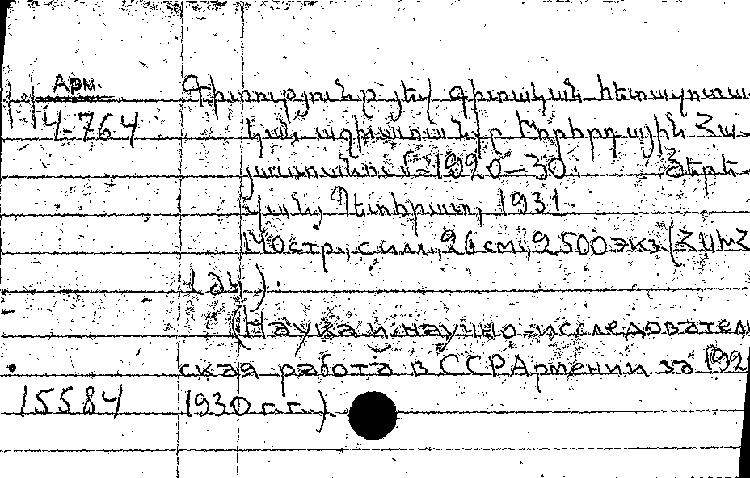 Арм.
4-764
Գիտությունը յեվ գիտական հետազոտա
կան աշխատանքը Խորհրդային Հա-
յաստանում 1920-30. Յերե-
վան, Պետհրատ, 1931.
стр., с илл., 26 см, 2500 экз. (ՀՍԽՀ
).
(Наука и научно-исследовател
ская работа в ССР Армении за 192
15584 1930 г.г.)